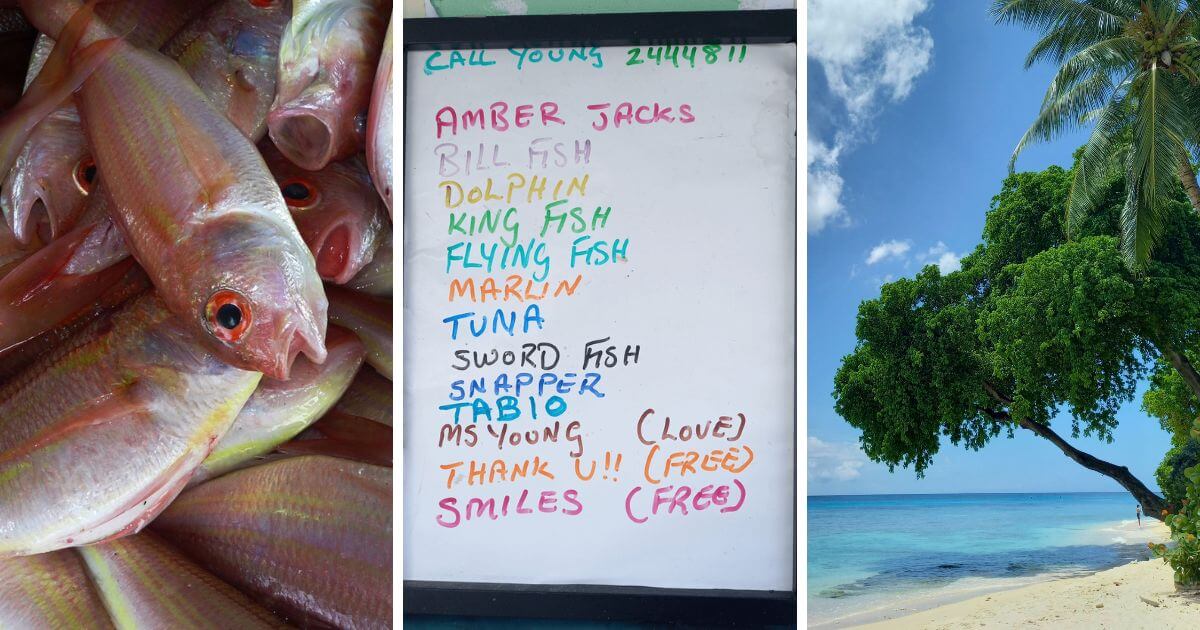 CALL YOUNG 2444811
AMBER JACKS
BILL FISH
DOLPHIN
KING FISH
FLYING FISH
MARLIN
TUNA
SWORD FISH
SNAPPER
TAB10
MS YOUNG (LOVE)
THANK U!! (FREE)
SMILES (FREE)